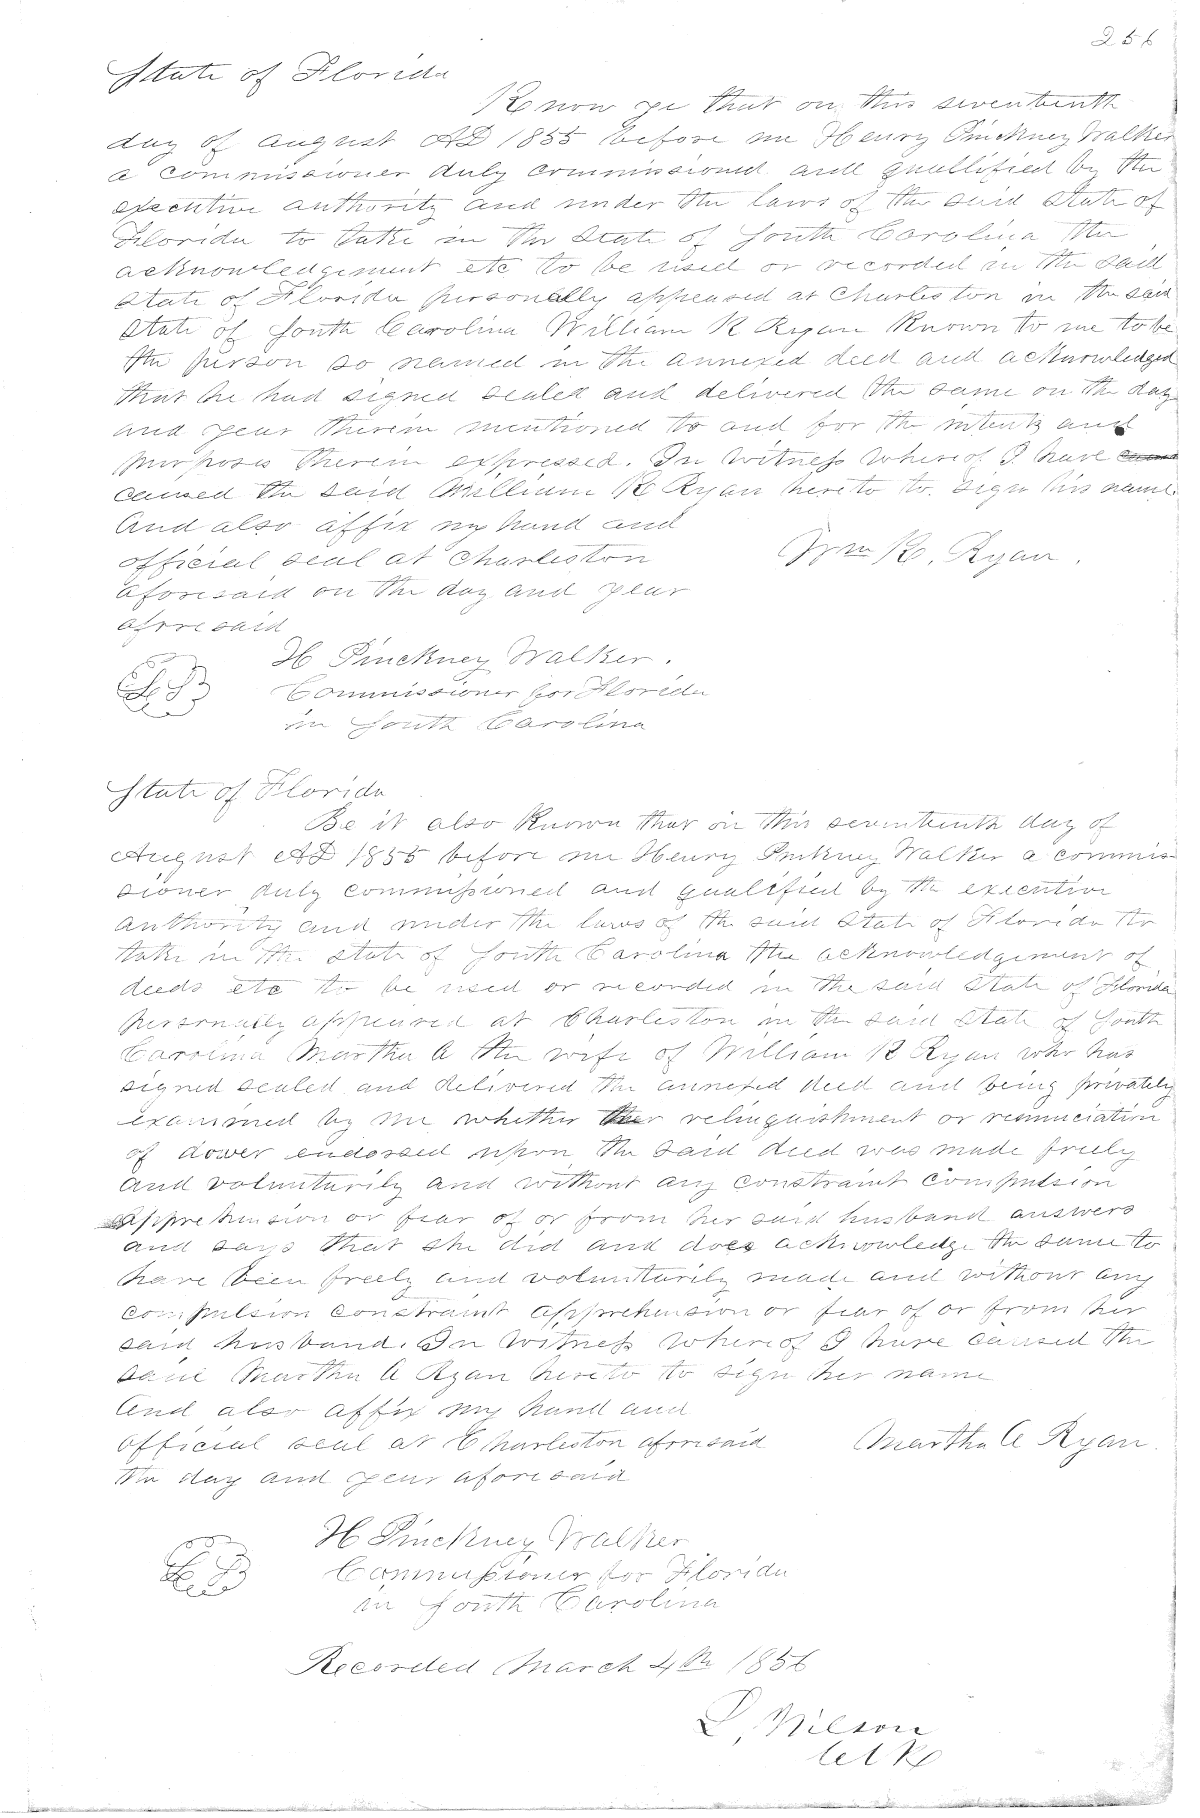 256
State of Florida
Know ye that on this seventeenth
day of august AD 1855 before me Henry Pinckney Walker
a commissioner duly commissioned and quallified by the
executive authority and under the laws of the said state of
Florida to take in the state of South Carolina the
acknowledgement etc to be used or recorded in the said
state of Florida personally appeased at Charleston in the said
state of South Carolina William R Ryan known to me to be
the person so named in the annexed deed and acknowledged
that he had signed sealed and delivered the same on the day
and year therein mentioned to and for the intents and
purposes therein expressed. In witness whereof I have
caused the said William R Ryan hereto to sign his name.
And also affix my hand and
official seal at Charleston
aforesaid on the day and year
aforesaid
Wm R. Ryan.
H Pinckney Walker.
Commissioner for Florida
in South Carolina
LS
State of Florida
Be it also known that on this seventeenth day of
August AD 1855 before me Henry Pinkney Walker a commis-
sioner duly commissioned and qualified by the executive
authority and under the laws of the said state of Florida to
take in the state of South Carolina the acknowledgement of
deeds etc to be used or recorded in the said state of Florida
personally appeared at Charleston in the said state of South
Carolina Martha A the wife of William R Ryan who has
signed sealed and delivered the annexed deed and being privately
examined by me whether her relinquishment or renunciation
of dower endorsed upon the said deed was made freely
and voluntarily and without any constraint compulsion
apprehension or fear of or from her said husband answers
and says that she did and does acknowledge the same to
have been freely and voluntarily made and without any
compulsion constraint apprehension or fear of or from her
said husband. In witness whereof I have caused the
said Martha A Ryan hereto to sign her name
And also affix my hand and
official seal at Charleston aforesaid
the day and year aforesaid
Martha A Ryan.
H Pinckney Walker
Commissioner for Florida
in South Carolina
LS
Recorded March 4th 1856
L, Wilson
Clk